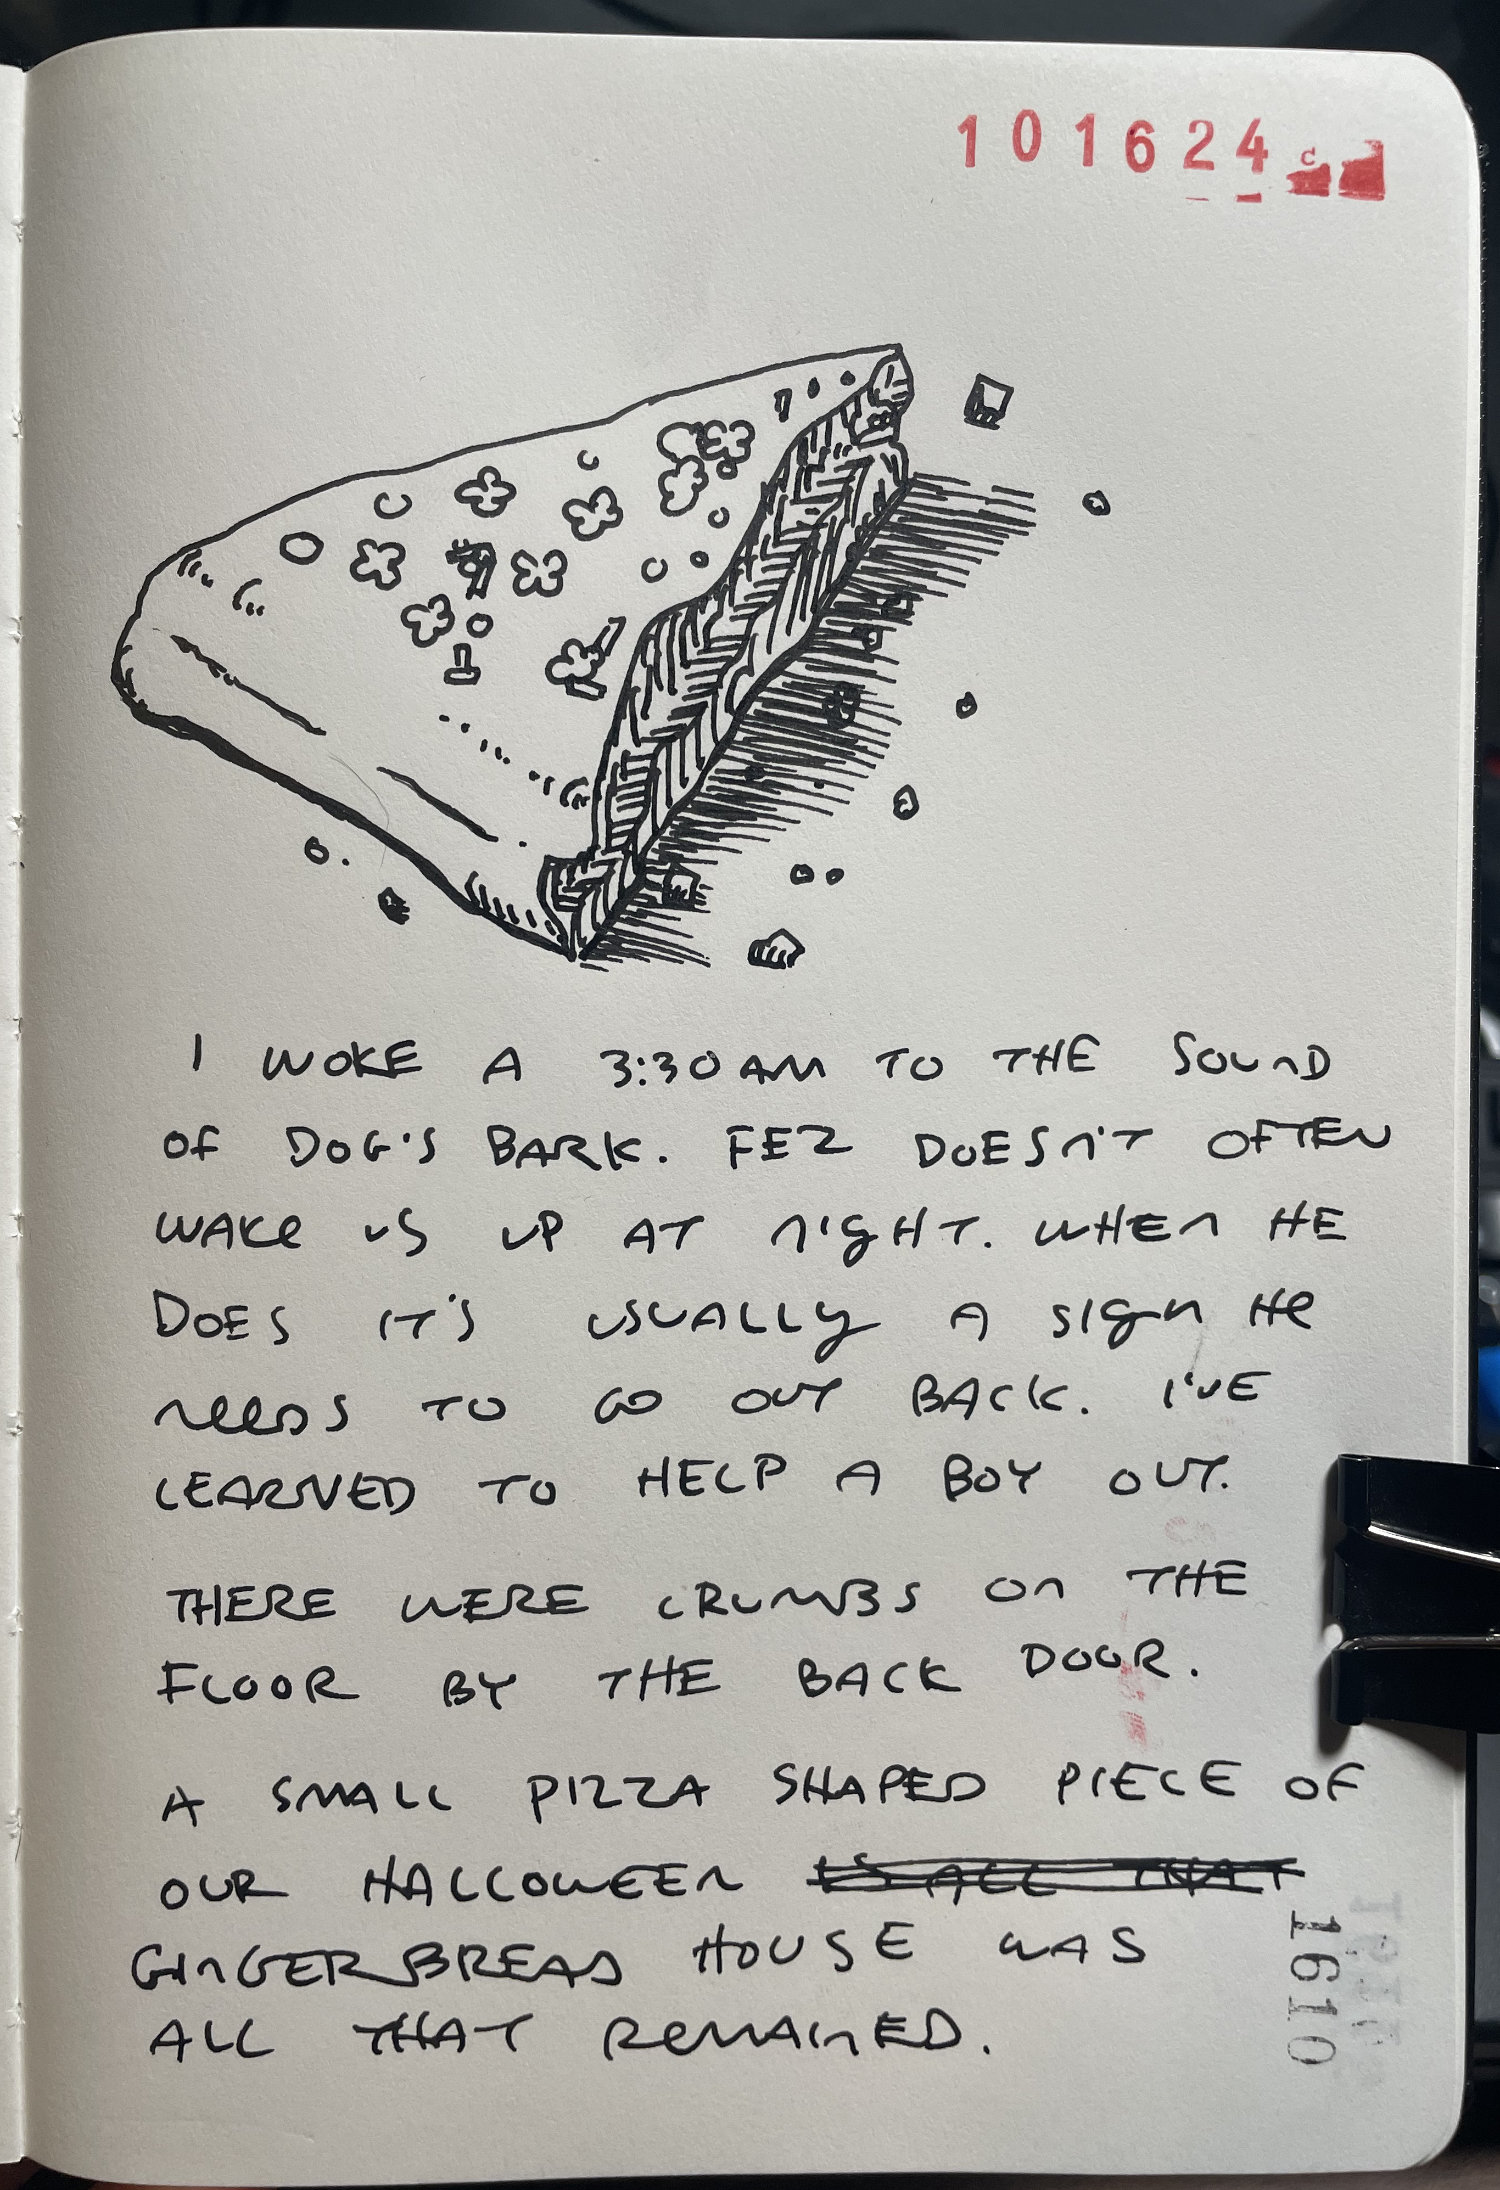 101624
I WOKE A 3:30AM TO THE SOUND
OF DOG'S BARK. FEZ DOESN'T OFTEN
WAKE US UP AT NIGHT. WHEN HE
DOES IT'S USUALLY A SIGN HE
NEEDS TO GO OUT BACK. I'VE
LEARNED TO HELP A BOY OUT.
THERE WERE CRUMBS ON THE
FLOOR BY THE BACK DOOR.
A SMALL PIZZA SHAPED PIECE OF
OUR HALLOWEEN IS ALL THAT
GINGERBREAD HOUSE WAS
ALL THAT REMAINED.
1610